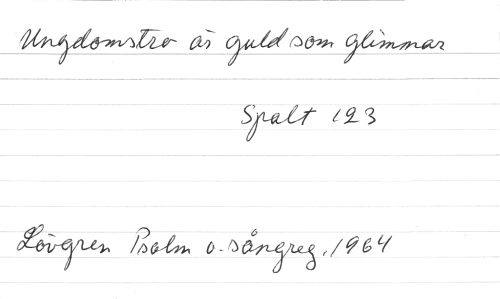 Ungdomstro är guld som glimmar
Spalt 123
Lövgren Psalm o. sångreg. 1964